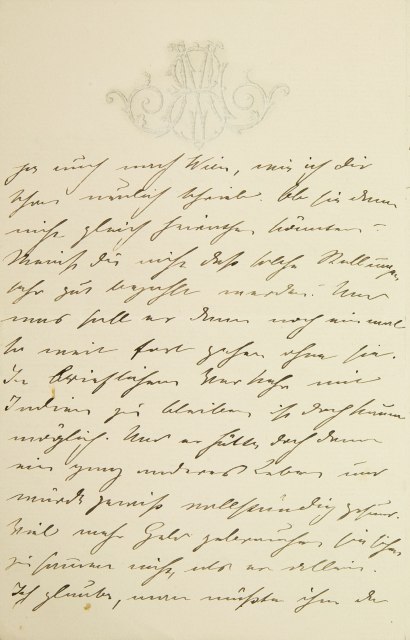 ja auch nach Wien, wie ich dir
schon neulich schrieb. Ob sie dann
nicht gleich heirathen könnten –
Meinst du nicht daß solche Stellungen
sehr gut bezahlt werden. Und
was soll er denn noch einmal
so weit fort gehen ohne sie.
In brieflichem Verkehr mit
Indien zu bleiben ist doch kaum
möglich. Und er hätte doch dann
ein ganz anderes Leben und
würde gewiß vollständig gesund.
Viel mehr Geld gebrauchen sie sicher
zusammen nicht, als er allein.
Ich glaube, man müßte ihm da